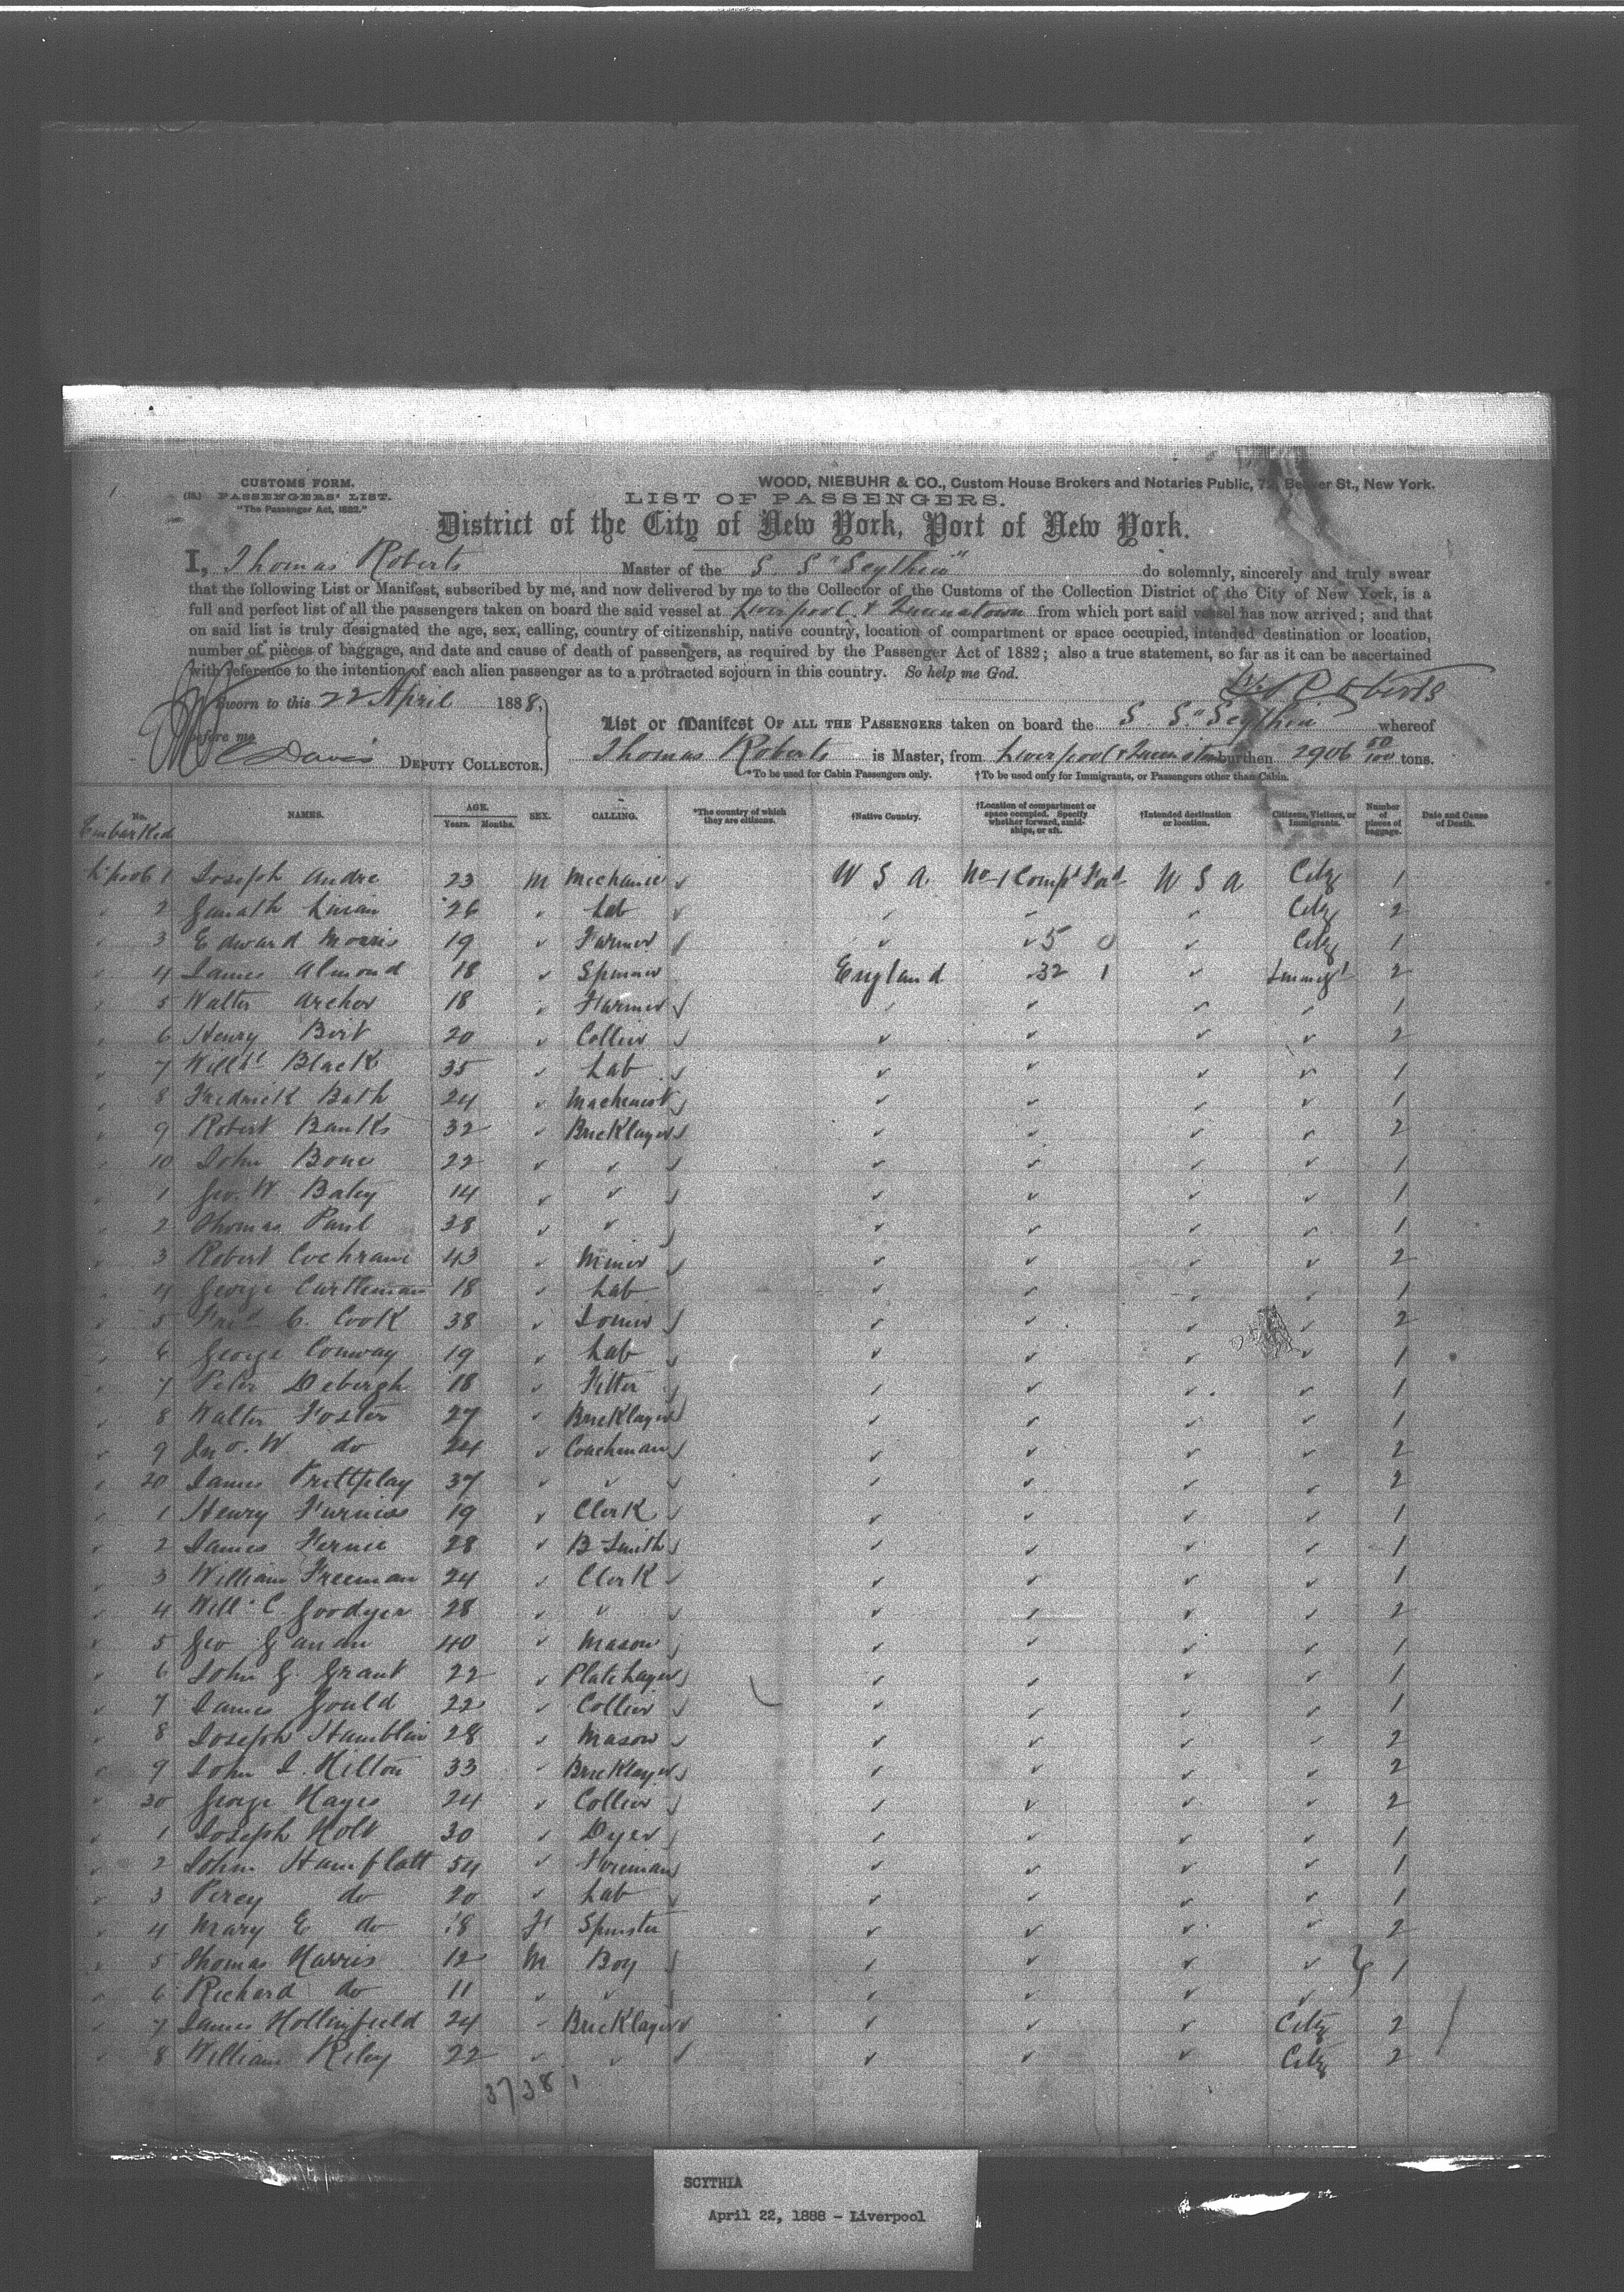 CUSTOMS FORM.
PASSENGERS' LIST.
"The Passenger Act, 1882."
WOOD, NIEBUHR & CO., Custom House Brokers and Notaries Public, 72 Beaver St., New York.
LIST OF PASSENGERS.
District of the City of New York, Port of New York.
I, Thomas Roberts Master of the S. S. "Scythia" do solemnly, sincerely and truly swear
that the following List or Manifest, subscribed by me, and now delivered by me to the Collector of the Customs of the Collection District of the City of New York, is a
full and perfect list of all the passengers taken on board the said vessel at Liverpool & Queenstown from which port said vessel has now arrived; and that
on said list is truly designated the age, sex, calling, country of citizenship, native country, location of compartment or space occupied, intended destination or location,
number of pieces of baggage, and date and cause of death of passengers, as required by the Passenger Act of 1882; also a true statement, so far as it can be ascertained
with reference to the intention of each alien passenger as to a protracted sojourn in this country. So help me God.
Roberts
Sworn to this 22 April 1888,
before me
Davis DEPUTY COLLECTOR.
List or Manifest OF ALL THE PASSENGERS taken on board the S. S. "Scythia whereof
Thomas Roberts is Master, from Liverpool & burthen 2906 50/100 tons.
*To be used for Cabin Passengers only. †To be used only for Immigrants, or Passengers other than Cabin.
No. NAMES. AGE. Years. Months. SEX. CALLING. *The country of which they are citizens. †Native Country. †Location of compartment or space occupied. Specify whether forward, amidships, or aft. †Intended destination or location. Citizens, Visitors, or Immigrants. Number of pieces of baggage. Date and Cause of Death.
Embarked
L'pool 1 Joseph Andre 23 M Mechanic U S A. No 1 Comp't For'd U S A City 1
2 26 Lab City 2
3 Edward Morris 19 Farmer 5 0 City 1
4 James Almond 18 Spinner England 32 1 Immigt 2
5 Walter Archer 18 Farmer 1
6 Henry Birt 20 Collier 2
7 Willm Black 35 Lab 1
8 Fredrick Bath 24 Machinist 1
9 Robert Banks 32 Bricklayer 2
10 John Bone 22 1
1 Geo. W Batey 14 1
2 Thomas Paul 38 1
3 Robert Cochrane 43 Miner 2
4 George Cartleman 18 Lab 1
5 Fred C. Cook 38 Joiner 2
6 George Conway 19 Lab 1
7 Peter Debergh 18 Fitter 1
8 Walter Foster 27 Bricklayer 1
9 Jno. W do 24 Coachman 2
20 James 37 2
1 Henry Furniss 19 Clerk 1
2 James Fernie 28 B Smith 1
3 William Freeman 24 Clerk 1
4 Will. C. Goodyer 28 2
5 Geo 40 Mason 1
6 John G. Grant 22 Platelayer 1
7 James Gould 22 Collier 1
8 Joseph Hamblin 28 Mason 2
9 John J. Hilton 33 Bricklayer 2
30 George Hayes 24 Collier 2
1 Joseph Holt 30 Dyer 1
2 John Hamflatt 54 Foreman 1
3 Percy do 20 Lab 1
4 Mary E do 18 F Spinster 2
5 Thomas Harris 12 M Boy 1
6 Richard do 11
7 James Hollinfield 24 Bricklayer City 2
8 William Riley 22 City 2
37 38 1
SCYTHIA
April 22, 1888 - Liverpool